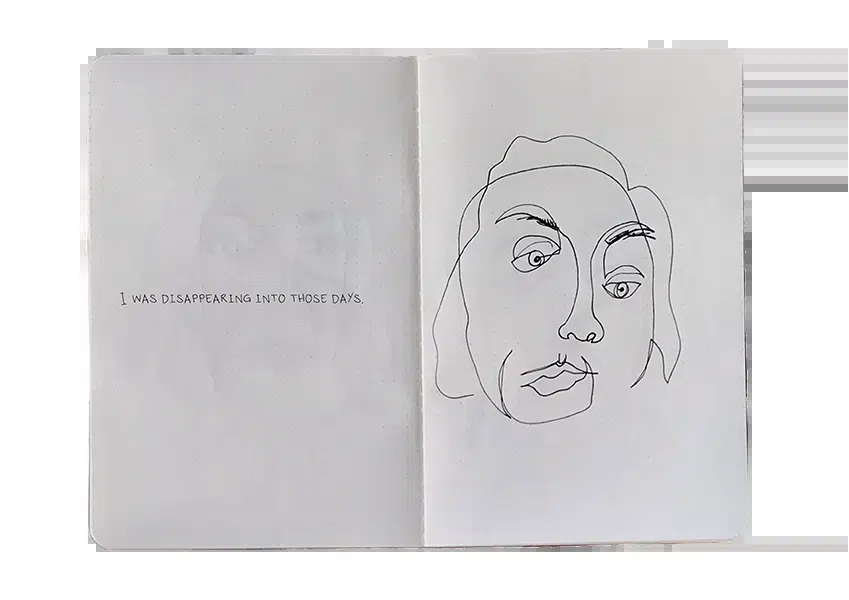 I WAS DISAPPEARING INTO THOSE DAYS.